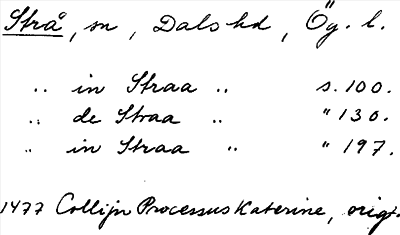 Strå, sn, Dals hd, Ög. l.
.. in Straa .. s. 100.
.. de Straa .. " 130.
.. in Straa .. " 197.
1477 Collijn Processus Katerine, orig.